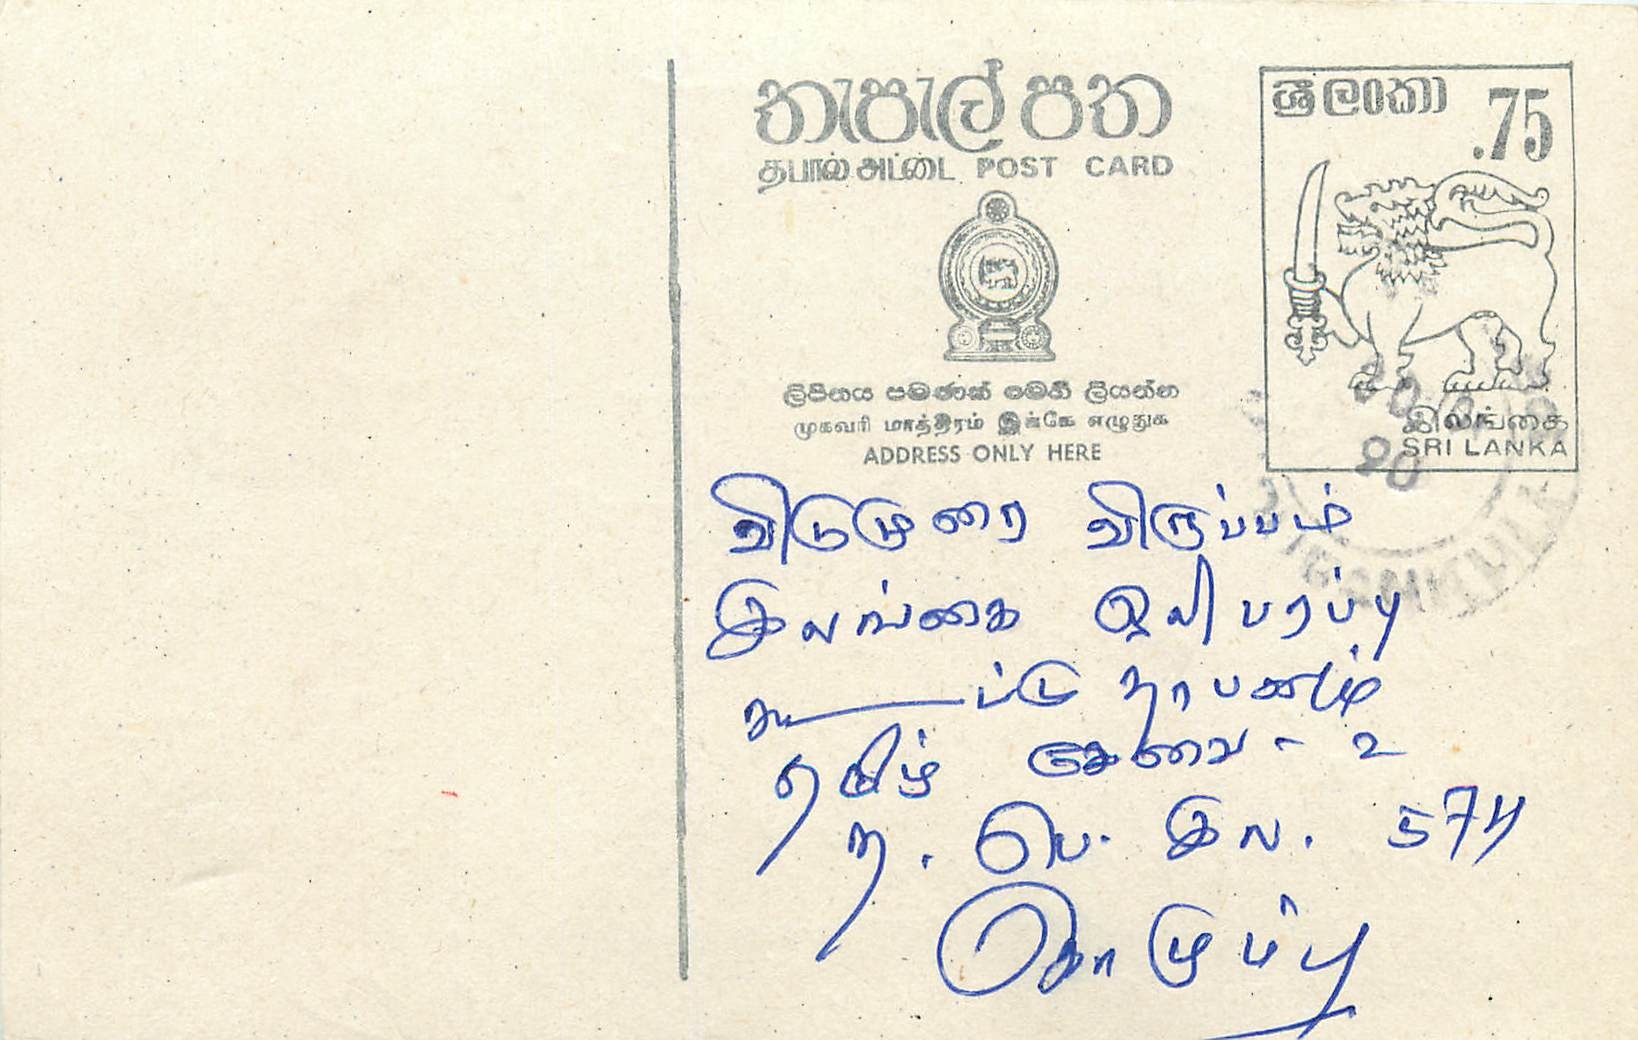 තැපැල් පත
தபால் அட்டை POST CARD
ශ්‍රී ලංකා .75
இலங்கை
SRI LANKA
ලිපිනය පමණක් මෙහි ලියන්න
முகவரி மாத்திரம் இங்கே எழுதுக
ADDRESS ONLY HERE
90
விடுமுறை விருப்பம்
இலங்கை ஒலிபரப்பு
கூட்டு தாபனம்
தமிழ் சேவை - 2
த. பெ. இல. 574
கொழும்பு